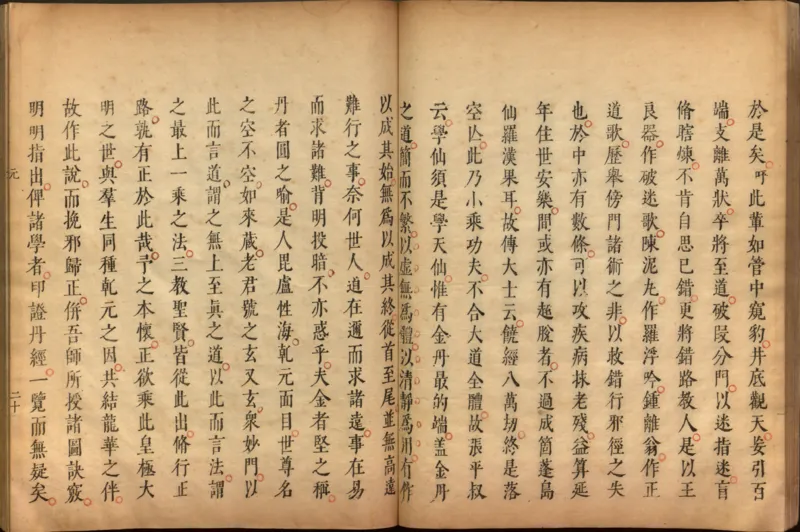 於是矣吁此輩如管中窺豹井底觀天妄引百
端支離萬狀卒將至道破段分門以迷指迷盲
脩瞎煉不肯自思已錯更將錯路教人是以王
良器作破迷歌陳泥丸作羅浮吟鍾離翁作正
道歌歷舉傍門諸術之非以救錯行邪徑之失
也於中亦有數條可以攻疾病抹老殘益算延
年住世安樂間或亦有超脫者不過成箇蓬島
仙羅漢果耳故傳大士云饒經八萬劫終是落
空亾此乃小乘功夫不合大道全體故張平叔
云學仙須是學天仙惟有金丹最的端盖金丹
之道簡而不繁以虛無爲體以清靜爲用有作
以成其始無爲以成其終從首至尾並無高遠
難行之事奈何世人道在邇而求諸遠事在易
而求諸難背明投暗不亦惑乎夫金者堅之稱
丹者圓之喻是人毘盧性海乾元面目世尊名
之空不空如來藏老君號之玄又玄衆妙門以
此而言道謂之無上至眞之道以此而言法謂
之最上一乘之法三教聖賢皆從此出脩行正
路孰有正於此哉予之本懷正欲乘此皇極大
明之世與羣生同種乾元之因共結龍華之伴
故作此說而挽邪歸正倂吾師所授諸圖訣竅
明明指出俾諸學者印證丹經一覽而無疑矣
元
二十